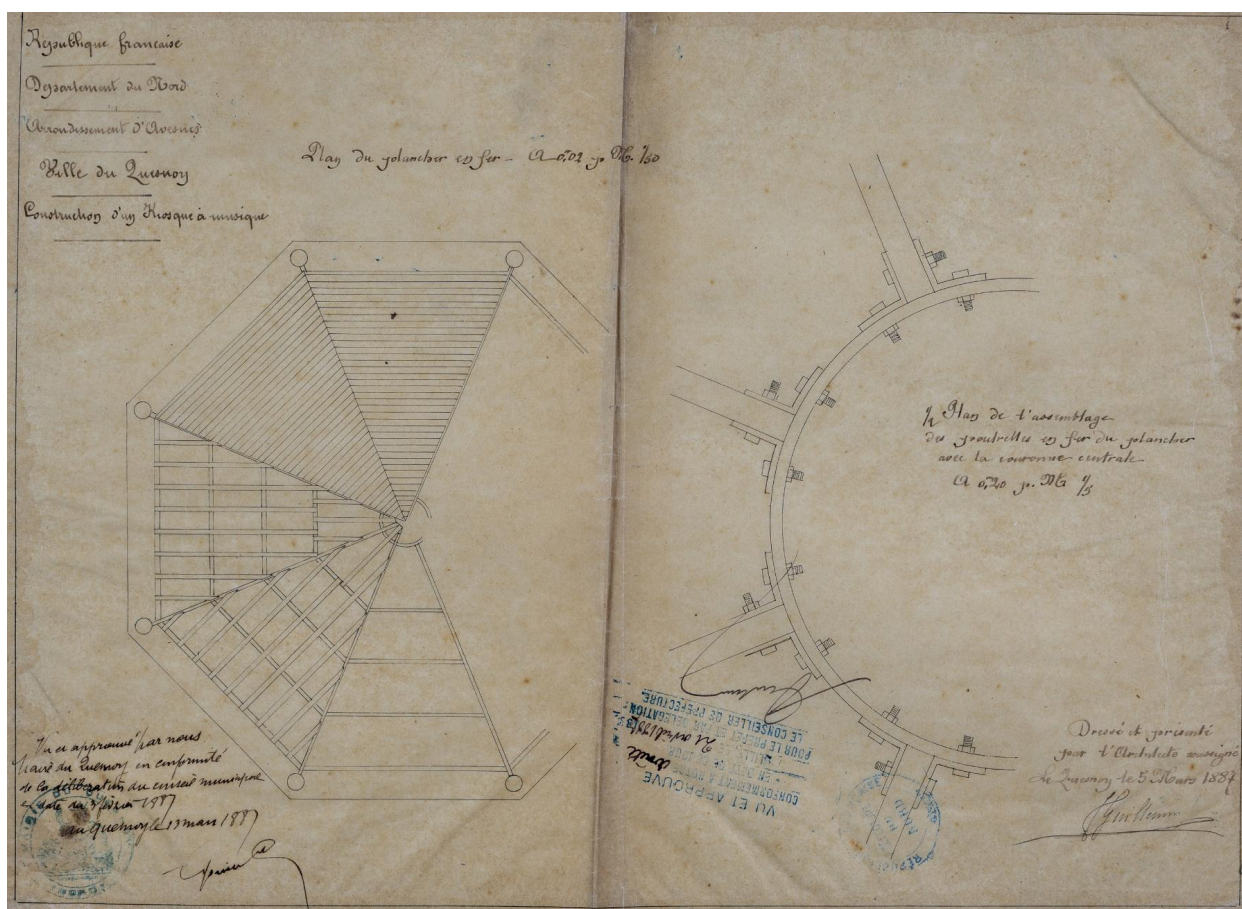 République française
Département du Nord
Arrondissement d'Avesnes
Ville du Quesnoy
Construction d'un Kiosque à musique
Plan du plancher en fer - A 0,02 p. M. 1/50
1/2 Plan de l'assemblage
des poutrelles en fer du plancher
avec la couronne centrale
A 0,20 p. M. 1/5
Vu et approuvé par nous
maire du Quesnoy en conformité
de la délibération du conseil municipal
en date du février 1887
au Quesnoy le 13 mars 1887
VU ET APPROUVÉ
CONFORMÉMENT A NOTRE
EN DATE DE CE JOUR
LILLE, LE 21 avril 1887
POUR LE PRÉFET ET PAR DÉLÉGATION
LE CONSEILLER DE PRÉFECTURE
NORD
Dressé et présenté
par l'Architecte soussigné
Le Quesnoy le 5 Mars 1887